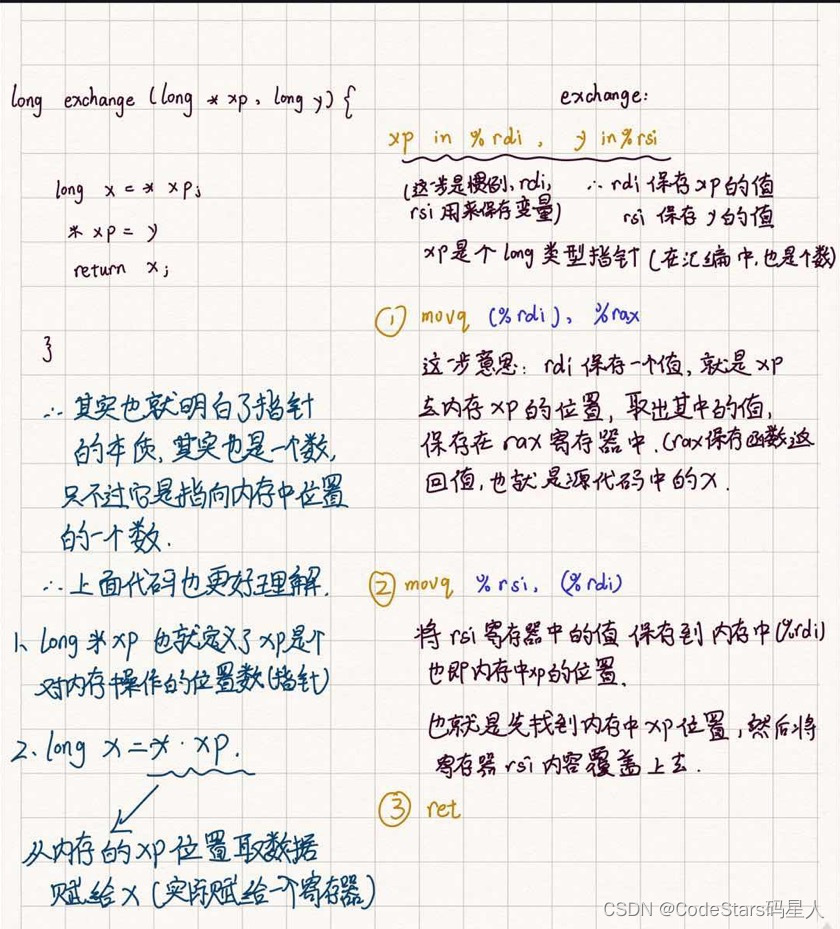 long exchange (long * xp, long y) {
long x = * xp;
* xp = y
return x;
}
∴ 其实也就明白了指针
的本质, 其实也是一个数,
只不过它是指向内存中位置
的一个数.
∴ 上面代码也更好理解.
1、long * xp 也就定义了 xp是个
对内存中操作的位置数(指针)
2、long x = * · xp.
从内存的xp位置取数据
赋给x (实际赋给一个寄存器)
exchange:
xp in %rdi, y in %rsi
(这步是惯例, rdi,
rsi 用来保存变量)
∴ rdi 保存 xp的值
rsi 保存 y的值
xp是个 long 类型指针 (在汇编中, 也是个数)
① movq (%rdi), %rax
这一步意思: rdi 保存一个值, 就是 xp
去内存 xp 的位置, 取出其中的值,
保存在 rax 寄存器中. (rax保存函数返
回值, 也就是源代码中的x.
② movq %rsi, (%rdi)
将 rsi 寄存器中的值 保存到 内存中(%rdi)
也即内存中xp的位置.
也就是先找到内存中 xp 位置, 然后将
寄存器 rsi 内容覆盖上去.
③ ret
CSDN @CodeStars码星人